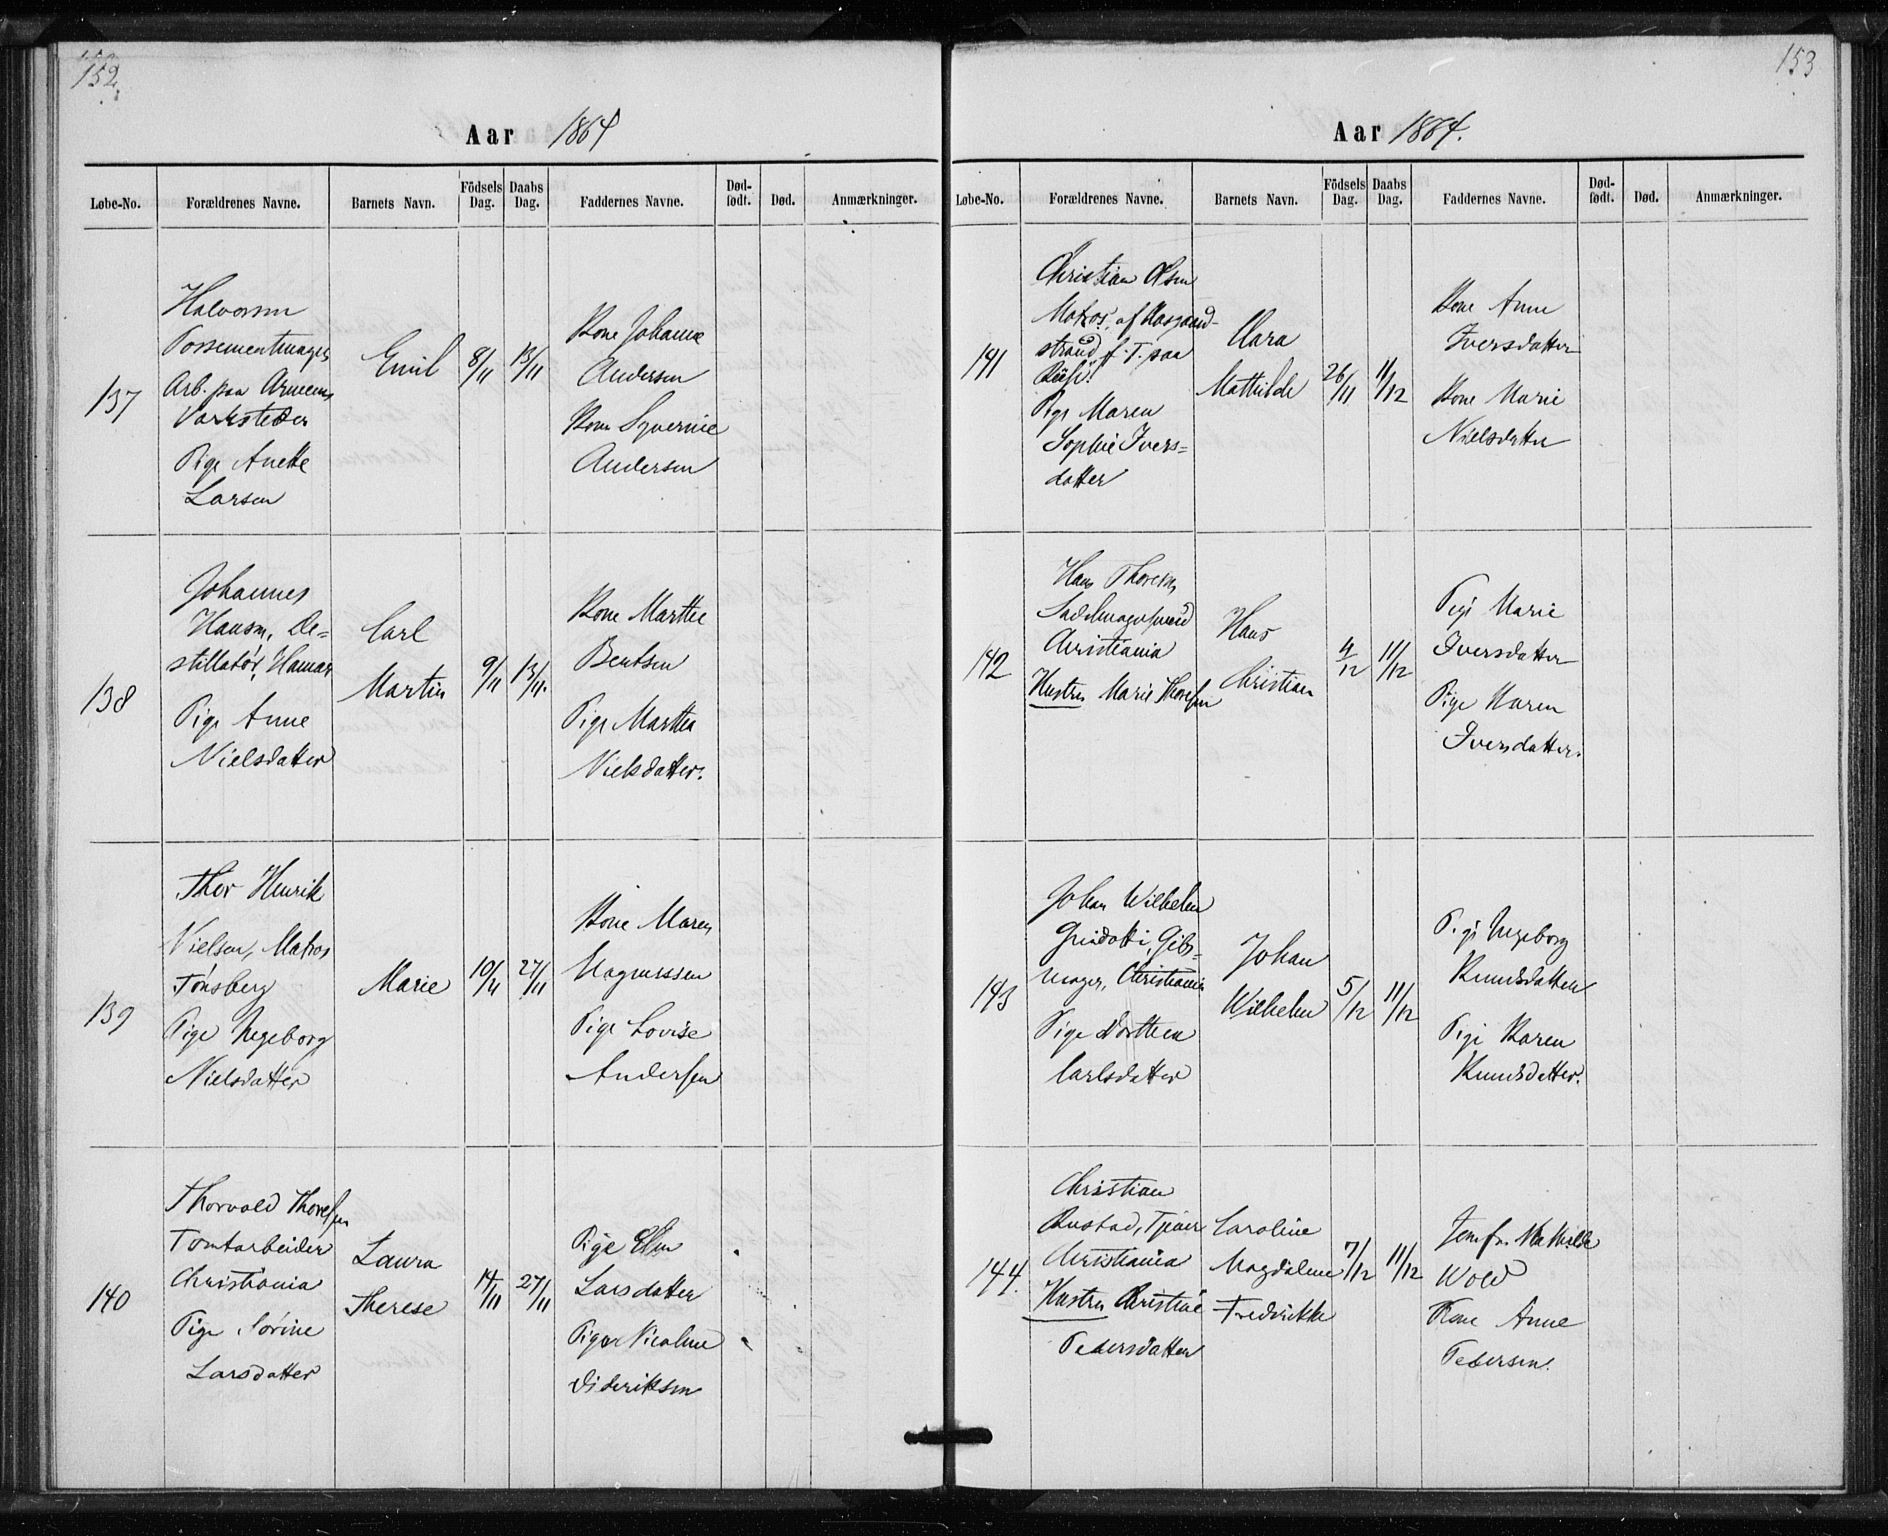 152.
Aar 1864
Løbe-No. Forældrenes Navne. Barnets Navn. Födsels Dag. Daabs Dag. Faddernes Navne. Død-født. Død. Anmærkninger.
137
Halvorsen
Possementmager
Arb. paa Armeens
Værksteder
Pige Anette
Larsen
Emil
8/11
13/11
Kone Johanne
Andersen
Kone Syvernie
Andersen
138
Johannes
Hansen, De=
stillatør, Hamar
Pige Anne
Nielsdatter
Carl
Martin
9/11
13/11.
Kone Marthe
Bentsen
Pige Marthea
Nielsdatter.
139
Thor Henrik
Nielsen, Matros
Tønsberg
Pige Ingeborg
Nielsdatter
Marie
10/11
27/11
Kone Maren
Magnussen
Pige Lovise
Andersen
140
Thorvald Thoresen
Tomtarbeider
Christiania
Pige Sørine
Larsdatter
Laura
Therese
14/11
27/11
Pige Ellen
Larsdatter
Pige Nicoline
Dideriksen
153
Aar 1864.
Løbe-No. Forældrenes Navne. Barnets Navn. Födsels Dag. Daabs Dag. Faddernes Navne. Død-født. Død. Anmærkninger.
141
Christian Olsen
Matros, af Aasgaard-
strand f. T. paa
Pige Maren
Sophie Ivers=
datter
Clara
Mathilde
26/11
11/12
Kone Anne
Iversdatter
Kone Marie
Nielsdatter
142
Hans Thoresen
Sadelmagersvend
Christiania
Hustru Marie Thoresen
Hans
Christian
4/12
11/12
Pige Marie
Iversdatter
Pige Maren
Iversdatter.
143
Johan Wilhelm
Guidotti, Gibs=
mager, Christiania
Pige Dorthea
Carlsdatter
Johan
Wilhelm
5/12
11/12
Pige Ingeborg
Knudsdatter
Pige Karen
Knudsdatter.
144.
Christian
Rustad, Tjener
Christiania
Hustru Christine
Pedersdatter
Caroline
Magdalene
Fredrikke
7/12
11/12
Jomfr. Mathilde
Wold
Kone Anne
Pedersen.